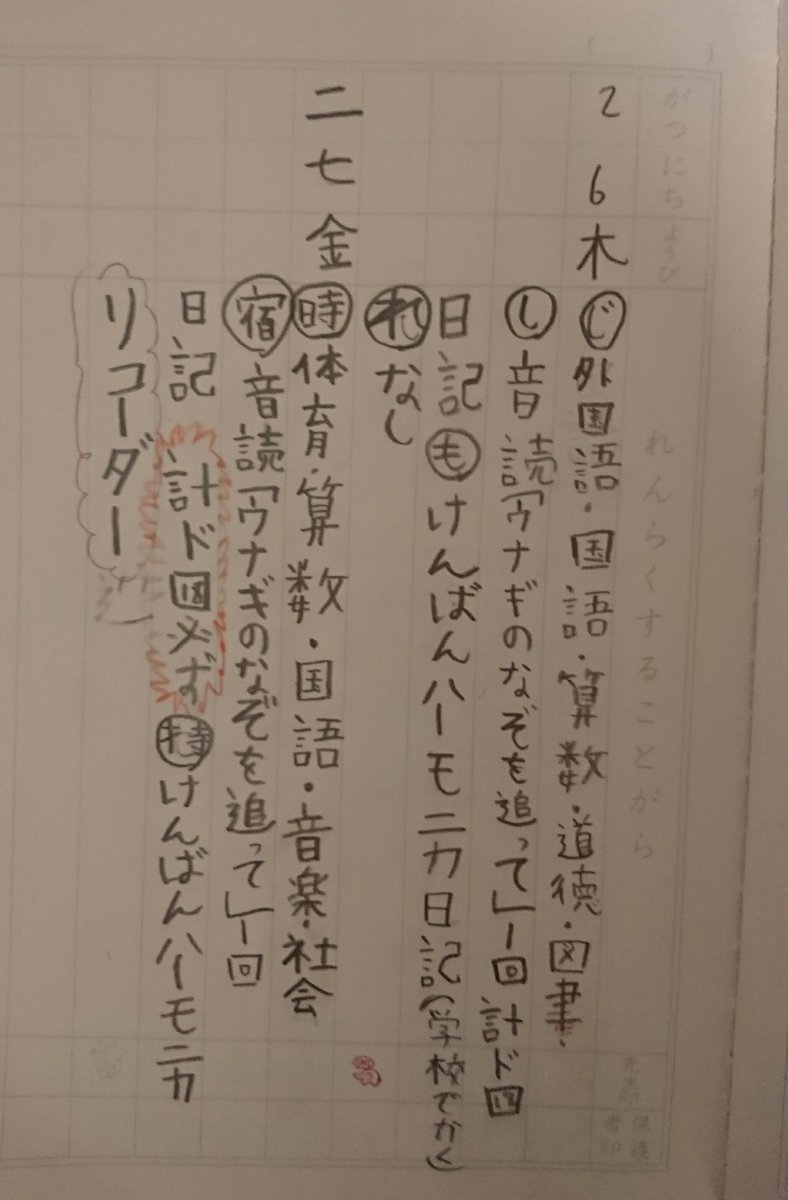 がつにちようび
れんらくすることがら
先生印
保護者印
2 6 木
じ 外国語・国語・算数・道徳・図書
し 音読「ウナギのなぞを追って」1回 計ド
日記 も けんばんハーモニカ日記(学校でかく)
れ なし
二 七 金
時 体育・算数・国語・音楽・社会
宿 音読「ウナギのなぞを追って」1回
日記 計ド 必ず 持 けんばんハーモニカ
リコーダー